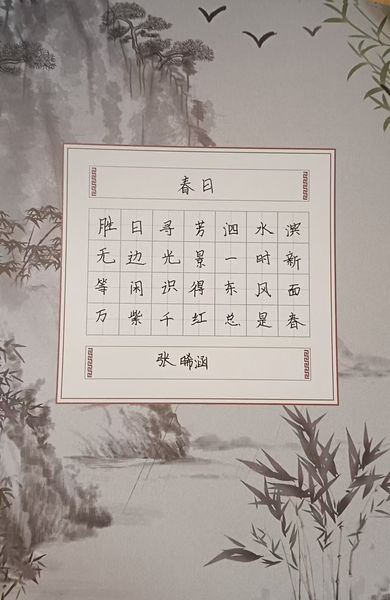 春日
胜日寻芳泗水滨
无边光景一时新
等闲识得东风面
万紫千红总是春
张晞涵